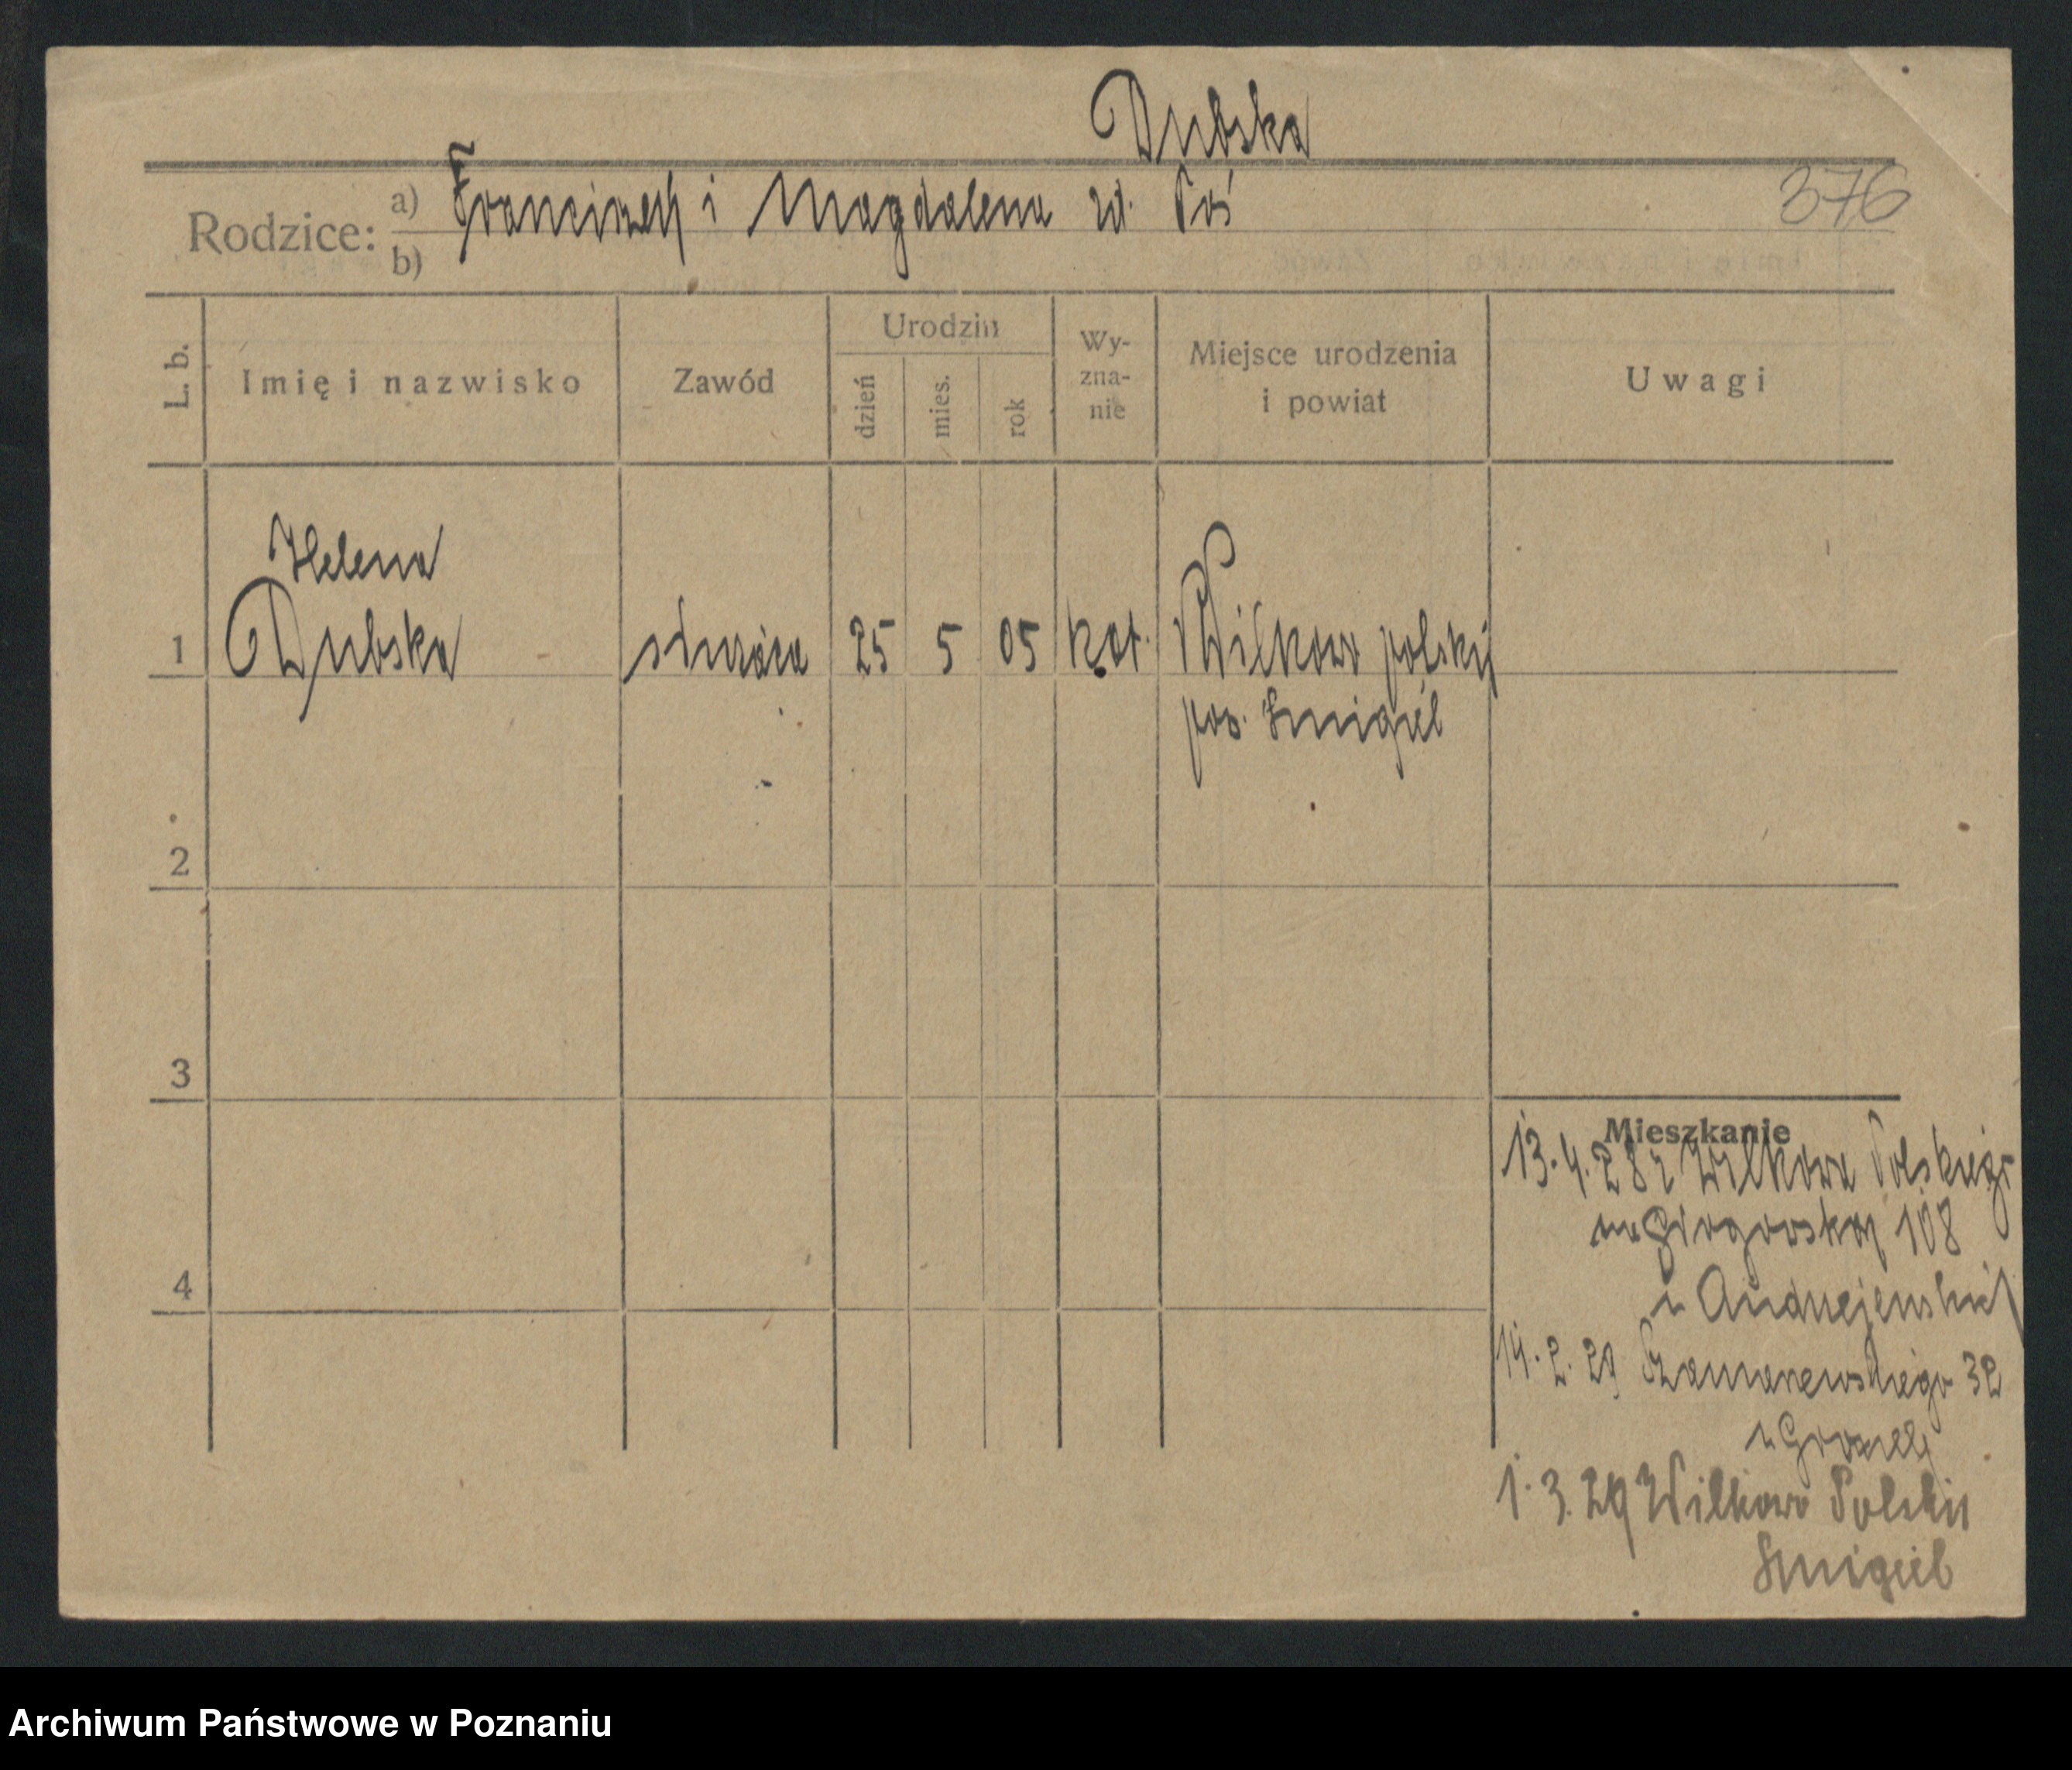 Dubska
376
Rodzice: a) Franciszek i Magdalena zd. Poś
b)
L. b. Imię i nazwisko Zawód Urodzin dzień mies. rok Wy-zna-nie Miejsce urodzenia i powiat Uwagi
Helena
1 Dubska służąca 25 5 05 kat. Wilkowo polskij
pow. Śmigiel
2
3
4
Mieszkanie
13.4.28 z Wilkowa Polskiego
Głogowska 108
u Andrzejewskich
14.2.29 32
u
1.3.29 Wilkowo Polskie
Śmigiel
Archiwum Państwowe w Poznaniu